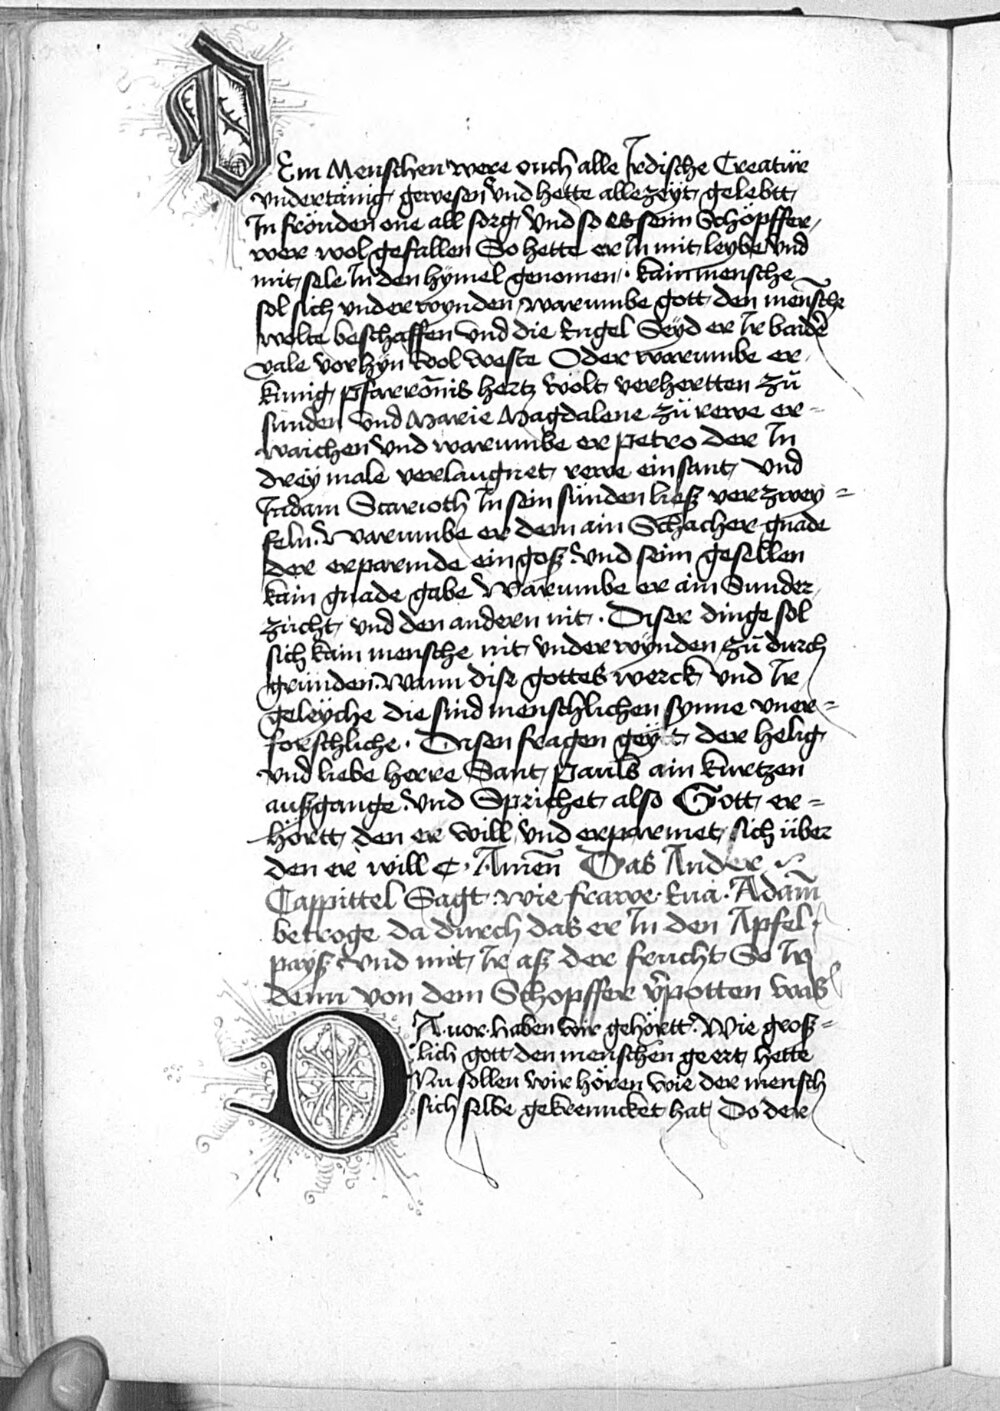 DEm Menschen were ouch alle Irdische Creatür
vndertänig gewesen vnd hette allezeÿt gelebtt
In frönden one all sorg vnd so es seim Schöpffer
wer wol gefallen So hette er In mit leybe vnd
mit sele In den hÿmel genomen · kain mensche
sol sich vnderwynden warumbe gott den mensche
wolte beschaffen vnd die Engel Seÿd er Ir baider
vale vorhÿn wol weste Oder warumbe er
künig pfarronis hertz wolt verhertten zü
sünden vnd Marie Magdalene zü rewe er-
waichen vnd warumbe er petro der In
dreÿ male verlaugnet rewe einsant vnd
Judam Scarioth In sein sünden liesz verzwey=
feln · Warumbe er dem ain Schacher gnade
der erparmde ein gosz vnd seim gesellen
kain gnade gabe Warumbe er ain Sunder
zücht vnd den andern nit · Diser dinge sol
sich kain mensche nit vnderwÿnden zü durch
gründen wann dise gottes werck vnd Ir
geleÿche die sind menschlichen synne vner=
forschliche · Disen fragen geÿtt der helig
vnd liebe herre Sant Pauls ain kurtzen
auszgange vnd Sprichet also Gott er=
hörtt den er will vnd erparmet sich über
den er will · Amen Das Ander
Cappittel Sagt wie frawe Eua · Adam
betroge da durch das er In den Apfel
paÿsz vnd mit Ir asz der frucht So Ir
denn von dem Schopffer v̾potten was
DA uor haben wir gehörtt · Wie grosz=
lich gott den menschen geert hette
Nu sollen wir hören wie der mensch
sich selbe gekrencket hat Do der